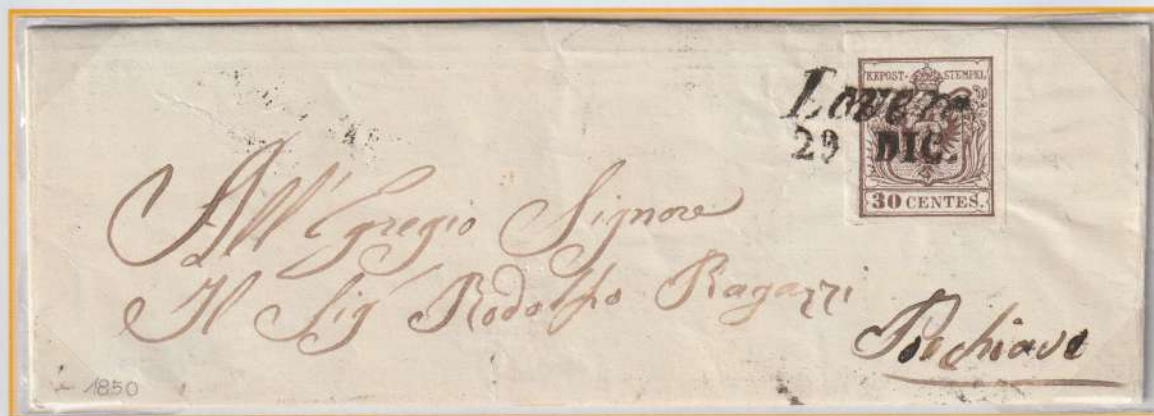 KKPOST-STEMPEL
Lovere
29 DIC.
30 CENTES.
All' Egregio Signore
Il Sigr Rodolfo Ragazzi
Poschiavo
1850